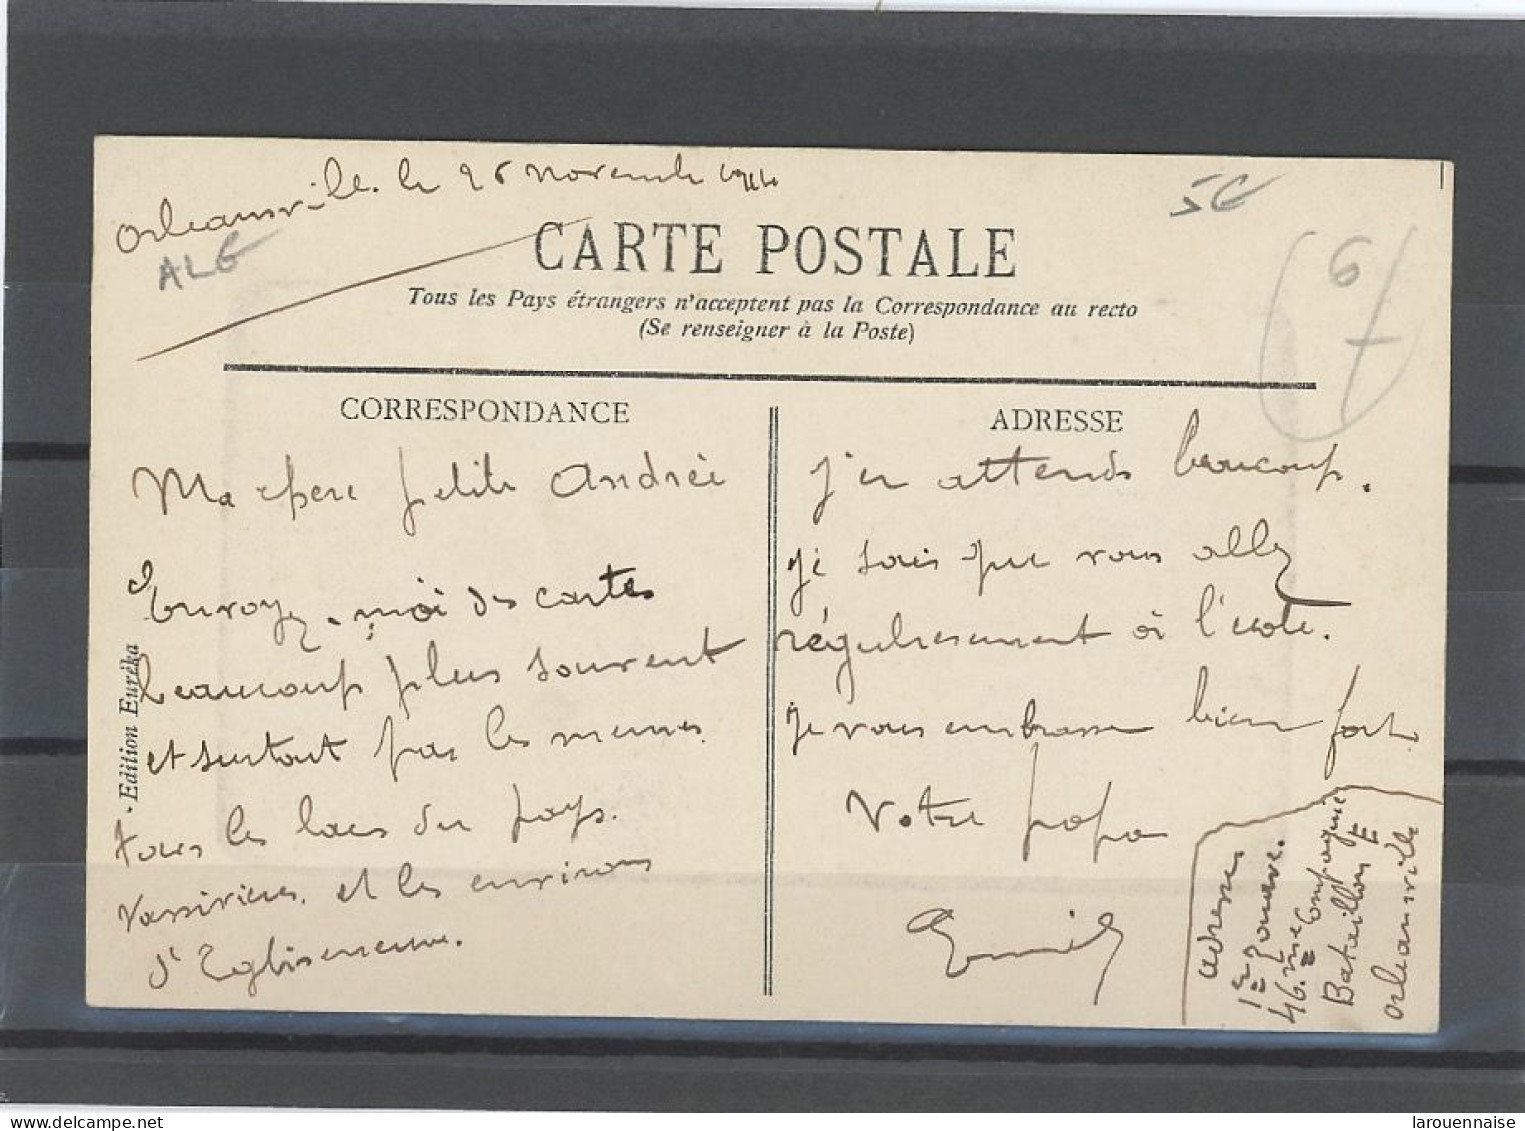 Orleansville. le 26 novembre 1914
ALG
5€
6
CARTE POSTALE
Tous les Pays étrangers n'acceptent pas la Correspondance au recto
(Se renseigner à la Poste)
CORRESPONDANCE
Ma chere petite Andrée
Envoyez-moi des cartes
beaucoup plus souvent
et surtout pas les memes
tous les lacs du pays.
Vassiviere. et les environs
d'Egliseneuve.
ADRESSE
j'en attends beaucoup.
je sais que vous allez
régulierement à l'école.
je vous embrasse bien fort
Votre papa
Emile
adresse
1er Zouave.
46.me Compagnie
Bataillon E
Orleansville
- Edition Euréka
larouennaise